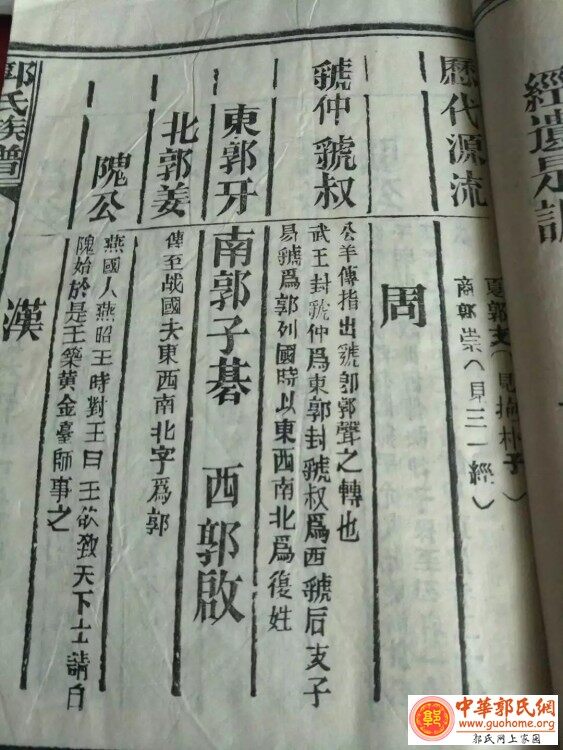 經遺是訓
歷代源流
夏郭支（見抱朴子）
商郭崇（見三一經）
周
虢仲 虢叔
公羊傳指出虢卽郭聲之轉也
武王封虢仲爲東郭封虢叔爲西虢后支子
易虢爲郭列國時以東西南北爲復姓
東郭牙 南郭子碁 西郭啟
北郭姜
傳至战國夫東西南北字爲郭
隗公
燕國人燕昭王時對王曰王欲致天下士請自
隗始於是王築黄金臺師事之
漢
郭氏族譜
中華郭氏網
www.guohome.org
郭氏网上家园